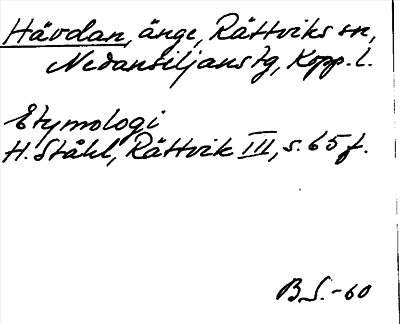 Hävdan, änge, Rättviks sn,
Nedansiljans tg, Kopp. l.
Etymologi
H. Ståhl, Rättvik III, s. 65 f.
B S. -60